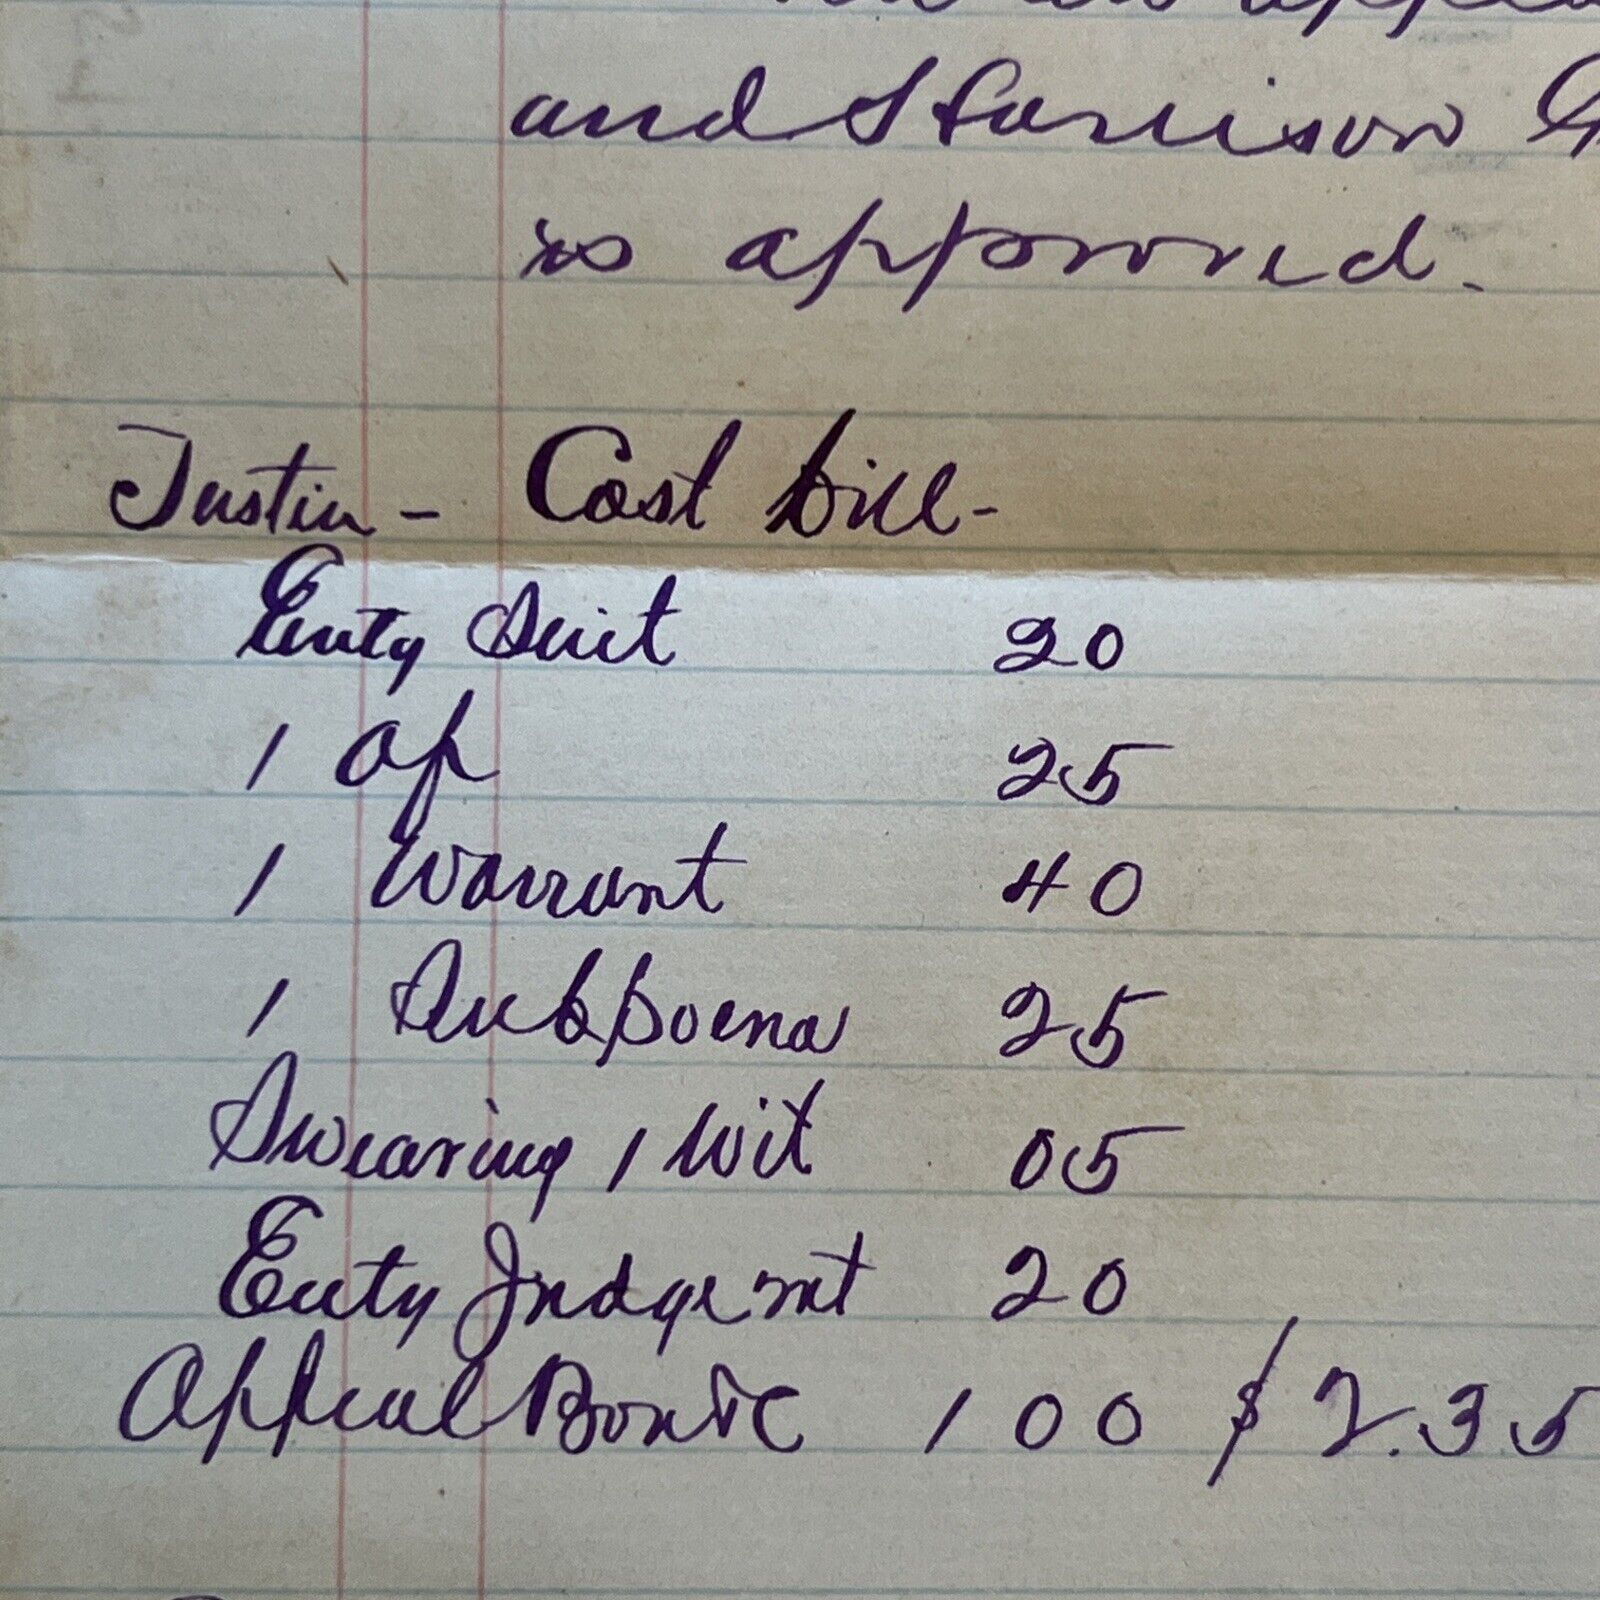 and Harrison
is approved.
Justice - Cost bill -
Enty Suit 20
1 Af 25
1 Warrant 40
1 Subpoena 25
Swearing 1 Wit 05
Enty Judgemt 20
Appeal Bond 100 $ 2.35